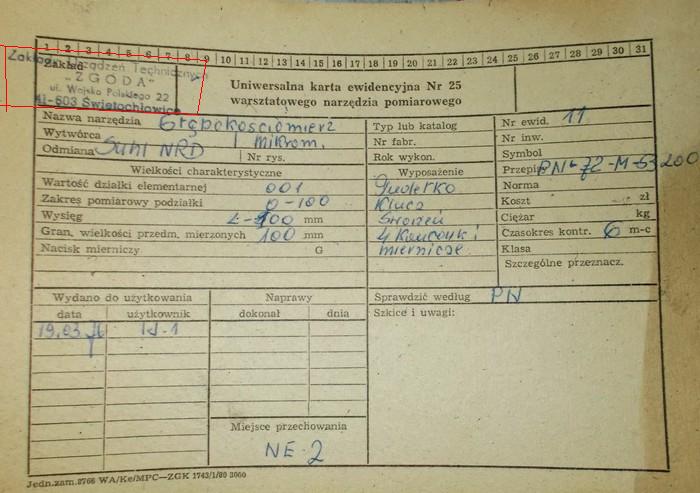 1 2 3 4 5 6 7 8 9 10 11 12 13 14 15 16 17 18 19 20 21 22 23 24 25 26 27 28 29 30 31
Zakład
Zakłady Urządzeń Technicznych
„ZGODA"
ul. Wojska Polskiego 22
41-603 Świętochłowice
Uniwersalna karta ewidencyjna Nr 25
warsztatowego narzędzia pomiarowego
Nazwa narzędzia Głębokościomierz
Wytwórca Mikrom.
Odmiana Suhl NRD Nr rys.
Wielkości charakterystyczne
Wartość działki elementarnej 001
Zakres pomiarowy podziałki 0-100
Wysięg L-100 mm
Gran. wielkości przedm. mierzonych 100 mm
Nacisk mierniczy G
Typ lub katalog
Nr fabr.
Rok wykon.
Wyposażenie
Pudełko
Klucz
4 Końcówki
miernicze
Nr ewid. 11
Nr inw.
Symbol
Przepis PN-72-M-53200
Norma
Koszt zł
Ciężar kg
Czasokres kontr. 6 m-c
Klasa
Szczególne przeznacz.
Wydano do użytkowania
data użytkownik
19.03
Naprawy
dokonał dnia
Miejsce przechowania
NE-2
Sprawdzić według PN
Szkice i uwagi:
Jedn.zam.8766 WA/Ke/MPC—ZGK 1743/1/80 3000